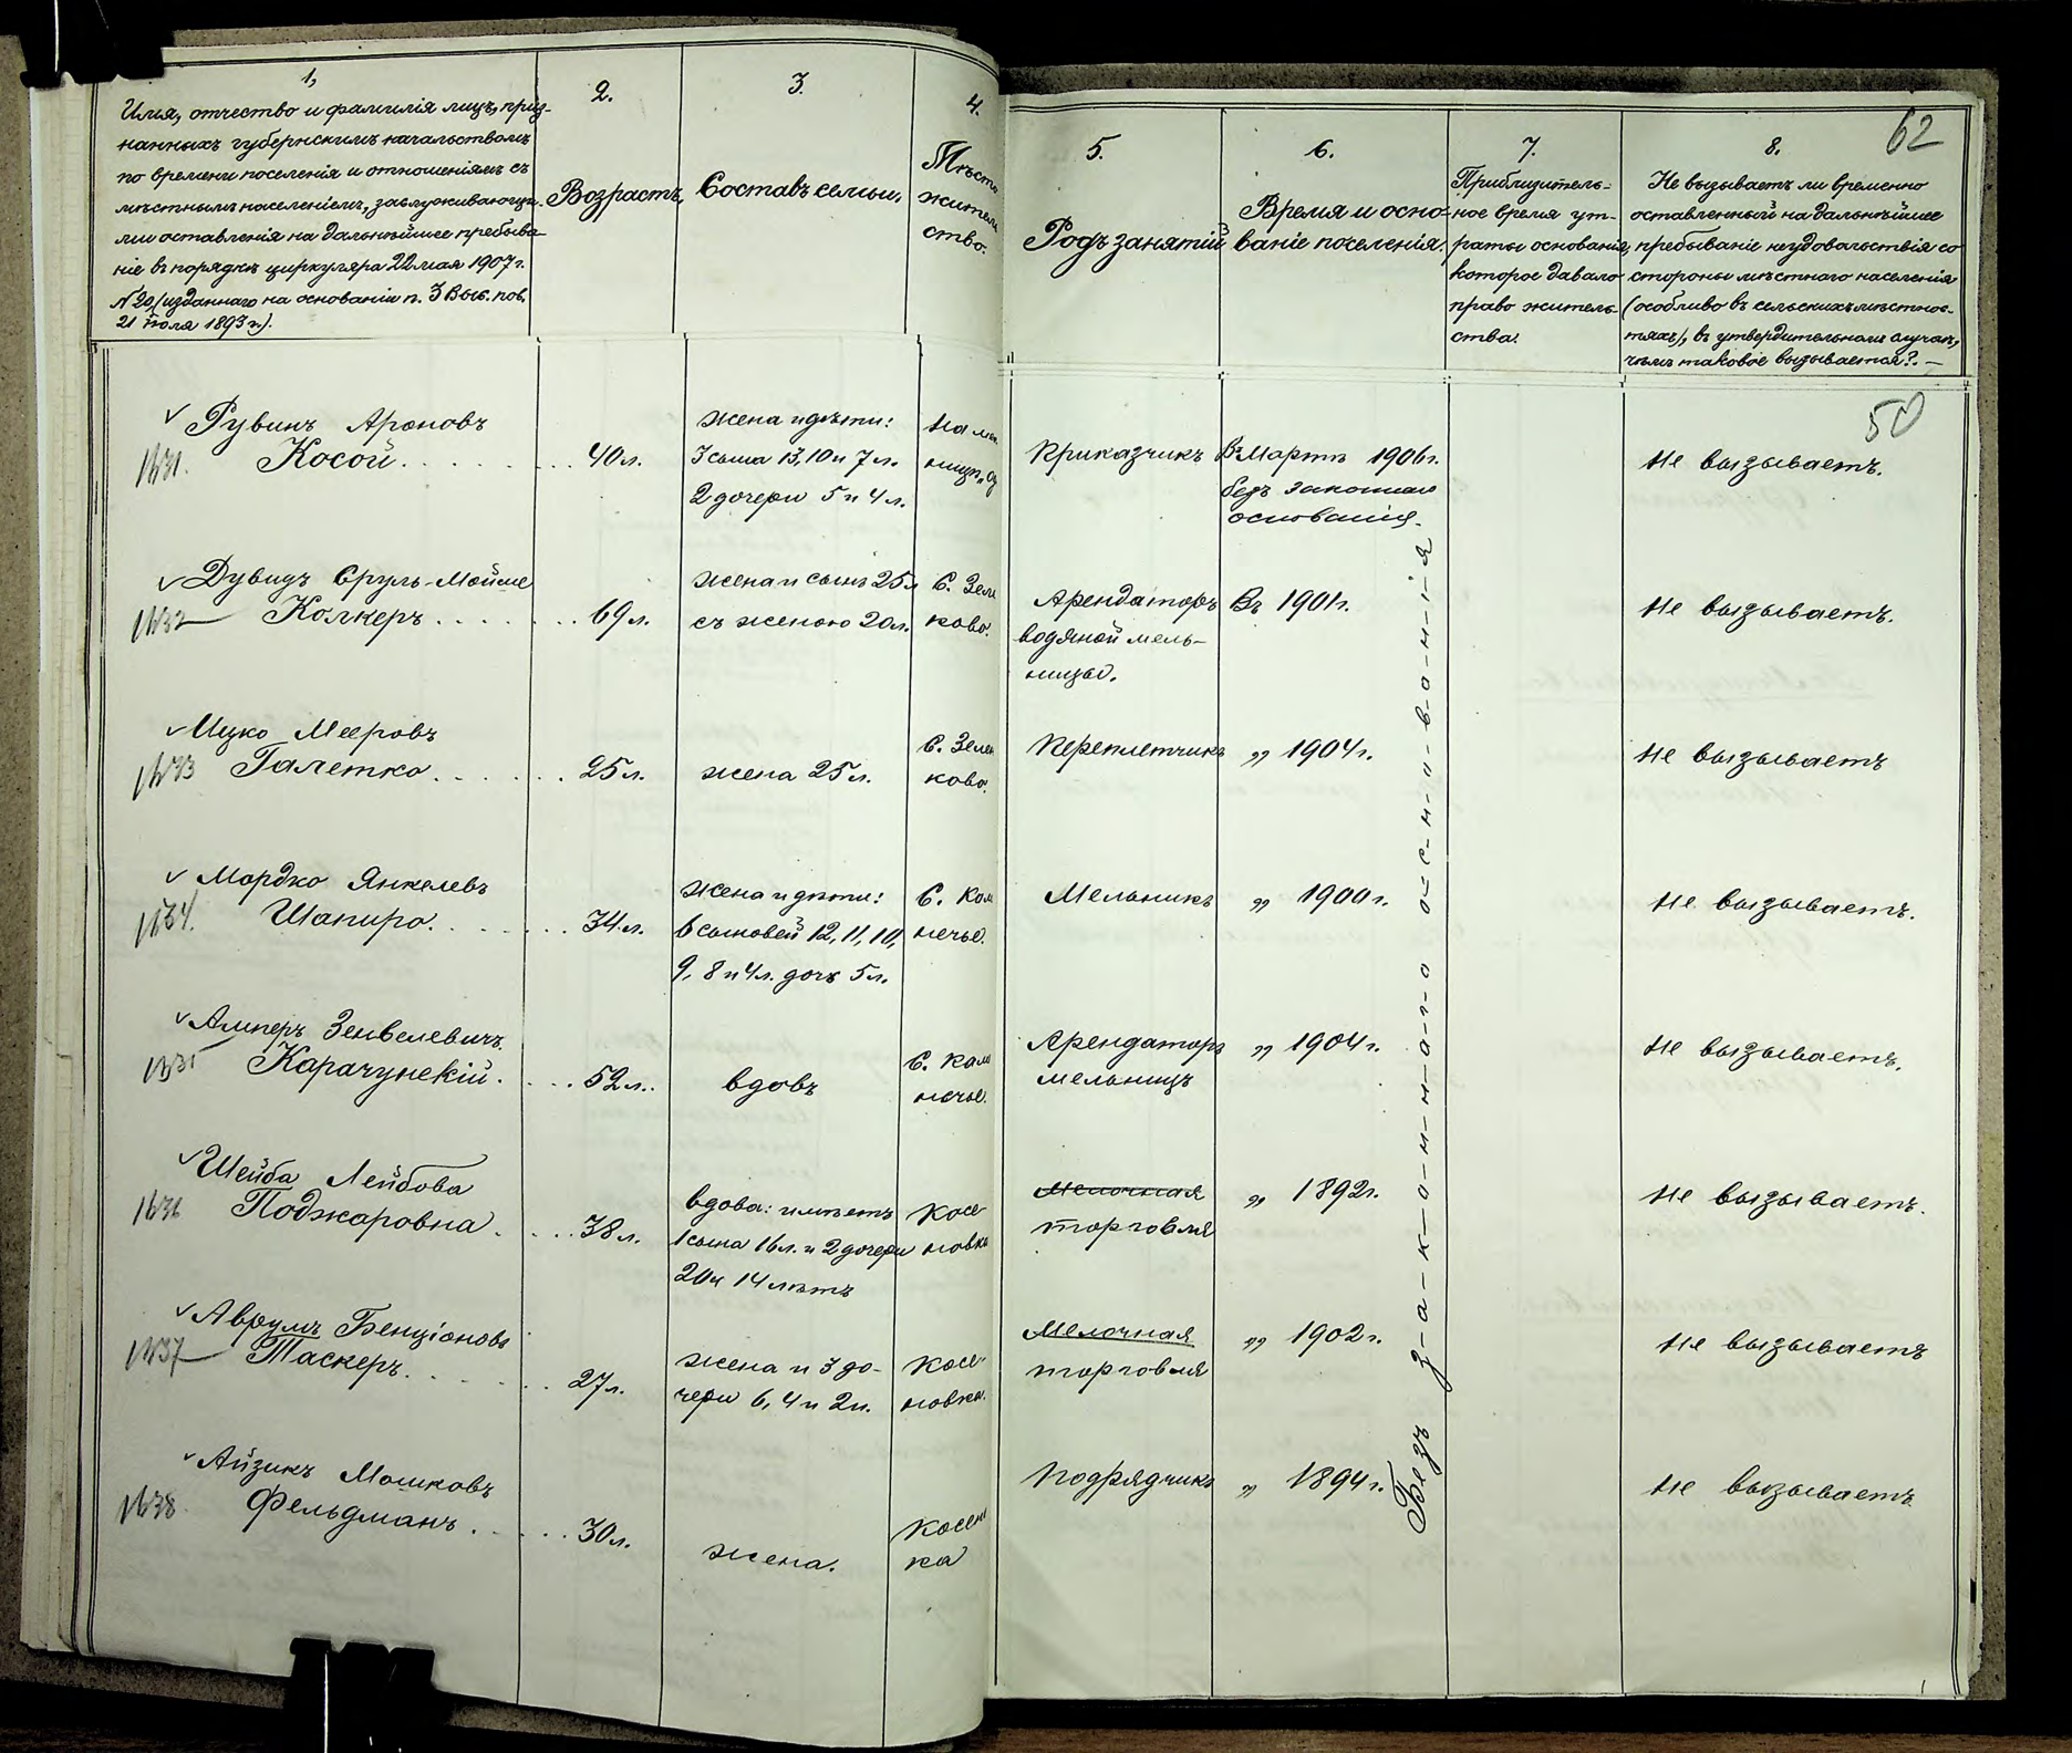 62
1,
Имя, отчество и фамилія лицъ, приз-
нанныхъ губернскимъ начальствомъ
по времени поселенія и отношеніямъ съ
мѣстнымъ населеніемъ, заслуживающи-
ми оставленія на дальнѣйшее пребыва-
ніе въ порядкѣ циркуляра 22 мая 1907 г.
№ 20 (изданнаго на основаніи п. 3 Выс. пов.
21 Iюля 1893 г.).
2.
Возрастъ,
3.
Составъ семьи,
4.
Мѣсто
житель
ство.
5.
Родъ занятій
6.
Время и осно-
ваніе поселенія.
7.
Приблизитель-
ное время ут-
раты основанія,
которое давало
право житель-
ства.
8.
Не вызываетъ ли временно
оставленный на дальнѣйшее
пребываніе неудовольствія со
стороны мѣстнаго населенія
(особливо въ сельскихъ мѣстнос-
тяхъ), въ утвердительномъ случаѣ,
чѣмъ таковое вызывается? —
50
Рувинъ Ароновъ
1631. Косой
40 л.
жена и дѣти:
3 сына 13, 10 и 7 л.
2 дочери 5 и 4 л.
Приказчикъ
Въ Мартѣ 1906 г.
безъ законнаго
основанія.
Не вызываетъ.
Дувидъ Сруль-Мойше
1632 Колкеръ
69 л.
жена и сынъ 25 л
съ женою 20 л.
С. Зеле
ково.
Арендаторъ
водяной мель-
ницы.
Въ 1901 г.
Не вызываетъ.
Ицко Мееровъ
1633 Галетко
25 л.
жена 25 л.
С. Зелен
ково.
Переплетчикъ
„ 1904 г.
Не вызываетъ
Мордко Янкелевъ
1634. Шапиро.
34 л.
жена и дѣти:
6 сыновей 12, 11, 10,
9, 8 и 4 л. дочь 5 л.
С. Кам
нечье.
Мельникъ
„ 1900 г.
Не вызываетъ.
Амперъ Зенвелевичъ
1635 Карачунскій.
52 л.
вдовъ
С. Кам
нечье.
Арендаторъ
мельницъ
„ 1904 г.
Не вызываетъ.
Шейба Лейбова
1636 Поджаровна.
38 л.
вдова: имѣетъ
1 сына 16 л. и 2 дочери
20 и 14 лѣтъ
Косе
новка
Мелочная
торговля
„ 1892 г.
Не вызываетъ.
Аврумъ Бенціоновъ
1637 Таскеръ.
27 л.
жена и 3 до-
чери 6, 4 и 2 л.
Косе
новка.
Мелочная
торговля
„ 1902 г.
Не вызываетъ
Айзикъ Мошковъ
1638. Фельдманъ
30 л.
жена.
Косен
ка
Подрядчикъ
„ 1894 г.
Не вызываетъ
Безъ з-а-к-о-н-н-а-г-о о-с-н-о-в-а-н-і-я